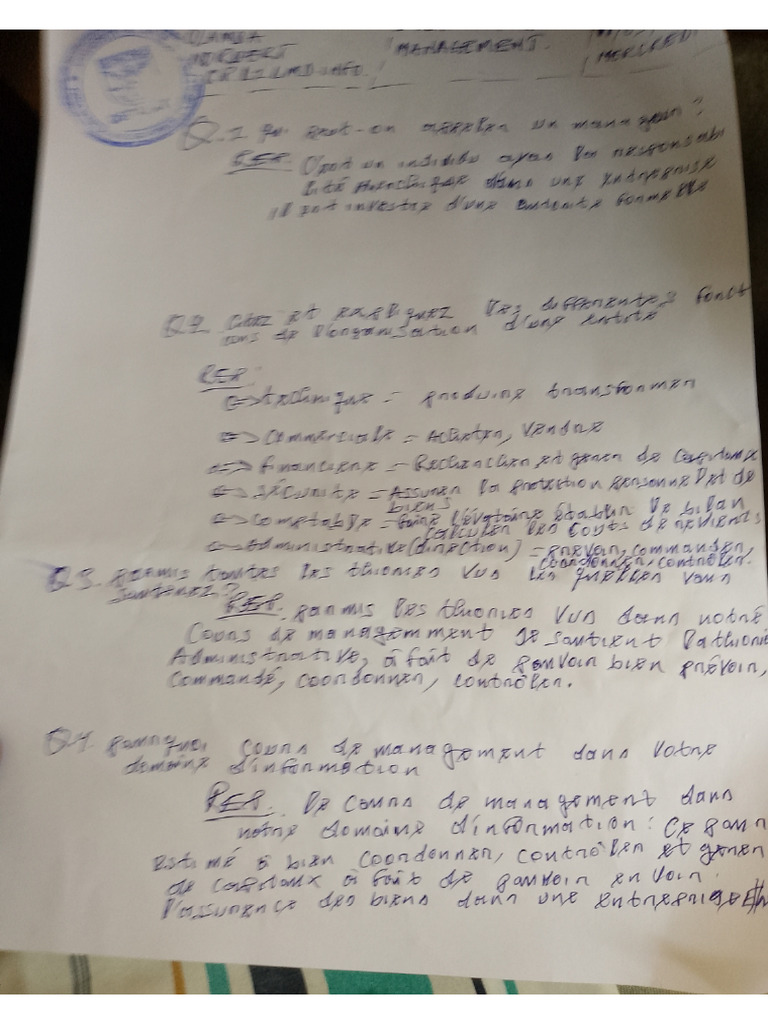 MANAGEMENT.
Q.1 Qu'peut-on appeler un manageur?
REP: C'est un individu ayan la responsabi
lité dans une entreprise
il est investie d'une autorité formelle
Q2. Citez et expliquez les differentes fonct
ions de l'organisation d'une entité
REP:
=> technique = produire transformer
=> commerciale = Acheter, vendre
=> financiere = Rechercher et gerer de capitaux
=> sécurité = Assurer la protection personnel et de
biens
=> comptable = faire l'évotaire établir le bilan
calculer les couts de reviens
=> Administrative (direction) = prevoir, commander,
coordonner, contrôler.
Q3. parmis toutes les theories vus les quelles vous
soutenez?
REP. parmis les theories vus dans notre
cours de managemment je soutient la théorie
Administrative, à fait de pouvoir bien prévoir,
commandé, coordonner, contrôler.
Q4. pourquoi cours de management dans votre
domaine d'information
REP. le cours de management dans
notre domaine d'information: ce pour
estimé à bien coordonner, contrôler et gerer
de capitaux à fait de pouvoir en voir
l'assurence des biens dans une entreprise